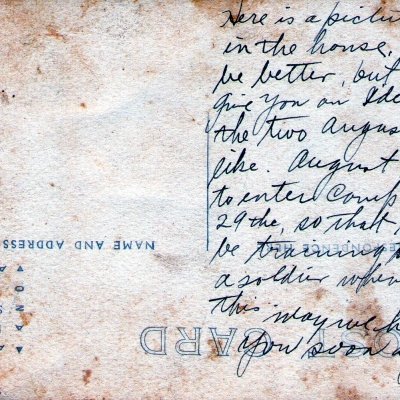 Here is a pictu
in the house.
be better, but
give you an Ide
the two Augus
like. August
to enter Camp
29th, so that
be training
a soldier when
this may we h
You soon
NAME AND ADDRESS
POST CARD